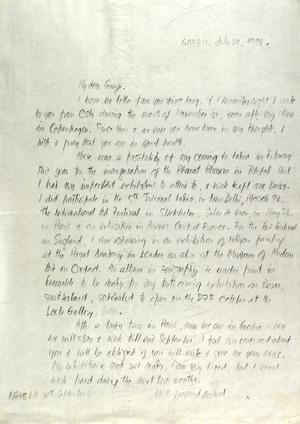 GORBIO, July 20, 1982.
My dear
I have no letter from you since long. If I remember right I wrote
to you from Oslo during the month of November 81, soon after my show
in Copenhagen. Since then you have been in my thought. I
wish & pray that you are in good health.
There was a possibility of my coming to India in February
this year for the inauguration of the Bharat Bhavan in Bhopal. But
I had my important exhibitions to attend to, & work kept me busy.
I did participate in the 5th Triennal India, in New Delhi, March 82,
The International Art Festival in Stockholm, in May 82,
in Paris & an exhibition in France. For the Festival
in England, I am showing in an exhibition of Indian painting
at the Royal Academy in London as also at the Museum of Modern
Art in Oxford. An album in is under print in
to be ready for my forthcoming exhibition in Bern,
Switzerland, scheduled to open on the 27th October at the
Loeb Gallery, Bern.
After a busy time in Paris, now we are in Gorbio where
we will stay & work till end September. I feel concerned about
you & will be obliged if you will write & give me your news.
My exhibitions went well, I am tired, but I must
work hard during the next two months.
till 30th September
With